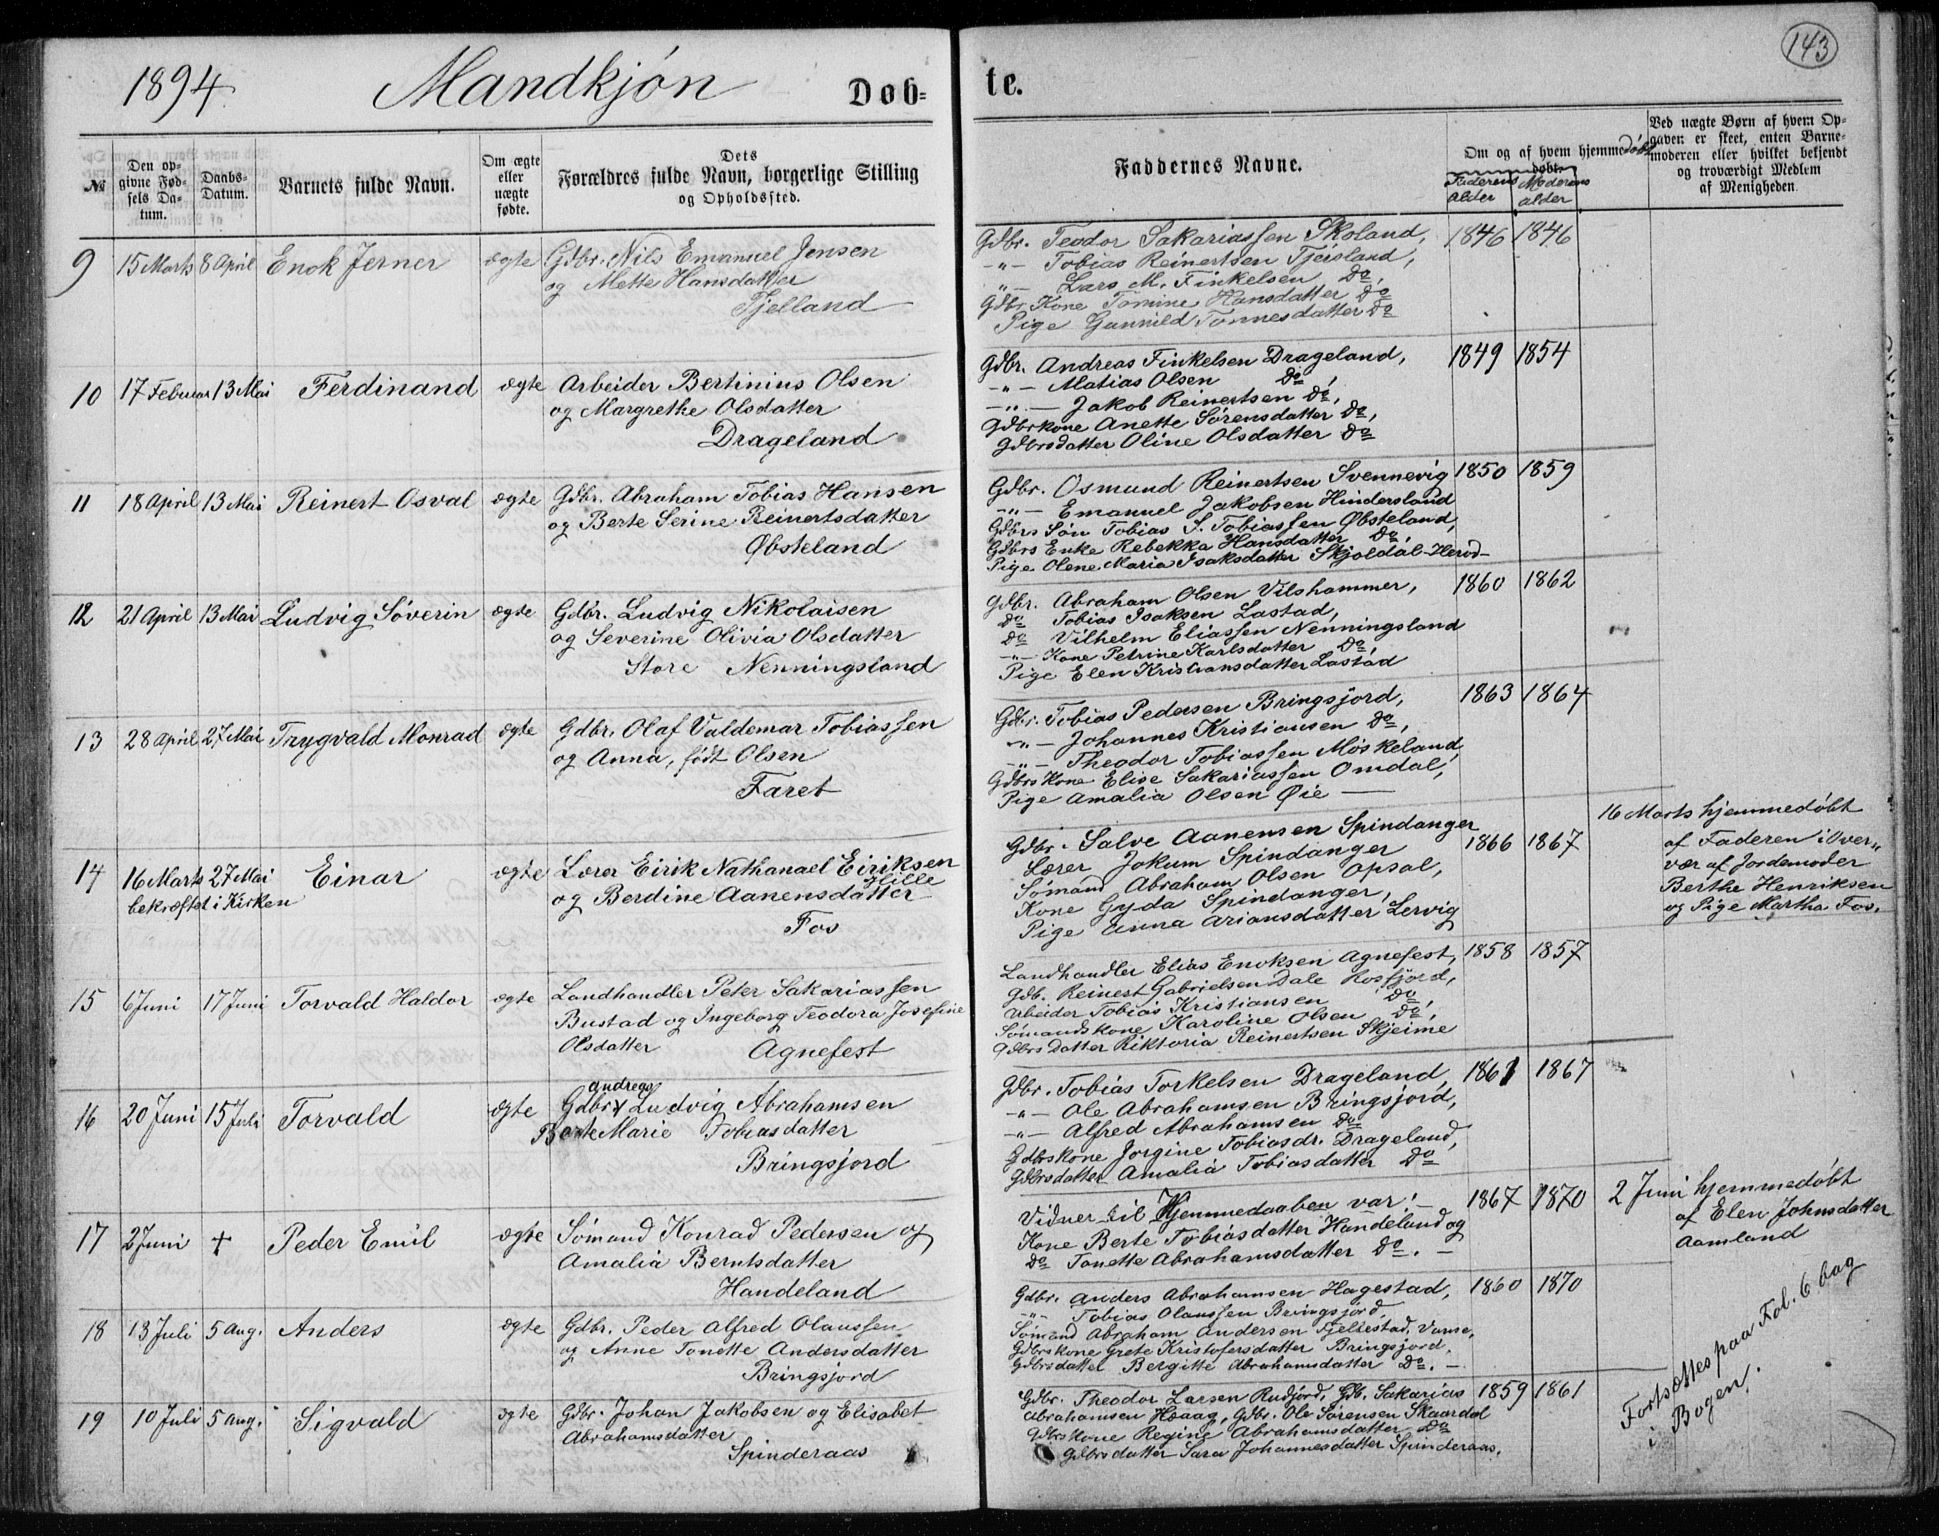 143
1894. Mandkjøn Døb- te.
№
Den op-
givne Fød-
sels Da-
tum.
Daabs-
Datum.
Barnets fulde Navn.
Om ægte
eller
uægte
fødte.
Dets
Forældres fulde Navn, borgerlige Stilling
og Opholdssted.
Faddernes Navne.
Om og af hvem hjemmedøbt
døbt.
Faderens
alder
Moderens
alder
Ved uægte Børn af hvem Op-
gaven er skeet, enten Barne-
moderen eller hvilket bekjendt
og troværdigt Medlem
af Menigheden.
9 15 Marts 8 April Enok Jerner ægte
Gdbr. Nils Emanuel Jensen
og Mette Hansdatter
Tjelland
Gdbr. Teodor Sakariassen Skoland, 1846 1846
-"- Tobias Reinertsen Tjersland,
-"- Lars M. Finkelsen Do,
Gdbr Kone Tomine Hansdatter Do
Pige Gunnild Tonnesdatter Do
10 17 Februar 13 Mai Ferdinand ægte
Arbeider Bertinius Olsen
og Margrethe Olsdatter
Drageland
Gdbr. Andreas Finkelsen Drageland, 1849 1854
-"- Matias Olsen Do,
-"- Jakob Reinertsen Do,
Gdbrskone Anette Sørensdatter Do,
Gdbrsdatter Oline Olsdatter Do
11 18 April 13 Mai Reinert Osval ægte
Gdbr. Abraham Tobias Hansen
og Berte Serine Reinertsdatter
Øbsteland
Gdbr. Osmund Reinertsen Svennevig 1850 1859
-"- Emanuel Jakobsen Hindersland
Gdbrs Søn Tobias S. Tobiassen Øbsteland,
Gdbrs Enke Rebekka Hansdatter Do,
Pige Olene Maria Isaksdatter Skjoldal-Herød-
12 21 April 13 Mai Ludvig Søverin ægte
Gdbr. Ludvig Nikolaisen
og Severine Olivia Olsdatter
Store Nenningsland
Gdbr. Abraham Olsen Vilshammer, 1860 1862
Do Tobias Isaksen Lastad,
Do Vilhelm Eliassen Nenningsland
-"- Kone Petrine Karlsdatter Do,
Pige Elen Kristiansdatter Lastad
13 28 April 27 Mai Trygvald Monrad ægte
Gdbr. Olaf Valdemar Tobiassen
og Anna, født Olsen
Faret
Gdbr. Tobias Pedersen Bringsjord, 1863 1864
-"- Johannes Kristiansen Do,
-"- Theodor Tobiassen Møskeland,
Gdbrs Kone Elise Sakariassen Omdal,
Pige Amalia Olsen Øie —
14 16 Marts 27 Mai Einar ægte
bekræftet i Kirken
Lærer Eirik Nathanael Eiriksen
Hille
og Berdine Aanensdatter
Fos
Gdbr. Salve Aanensen Spindanger 1866 1867
Lærer Jokum Spindanger
Sømand Abraham Olsen Opsal,
Kone Gyda Spindanger,
Pige Anna Ariansdatter Lervig
16 Marts hjemmedøbt
af Faderen i Over-
vær af Jordemoder
Berthe Henriksen
og Pige Martha Fos.
15 6 Juni 17 Juni Torvald Haldor ægte
Landhandler Peter Sakariassen
Bustad og Ingeborg Teodora Josefine
Olsdatter Agnefest
Landhandler Elias Enoksen Agnefest, 1858 1857
Gdb. Reinert Gabrielsen Dale Rosfjord,
Arbeider Tobias Kristiansen Do,
Sømandskone Karoline Olsen Do,
Gdbrs Datter Riktoria Reinertsen Skjeime
16 20 Juni 15 Juli Torvald ægte
Andreas
Gdbr. Ludvig Abrahamsen
Berte Marie Tobiasdatter
Bringsjord
Gdbr. Tobias Torkelsen Drageland, 1861 1867
-"- Ole Abrahamsen Bringsjord,
-"- Alfred Abrahamsen Do
Gdbskone Jorgine Tobiasdr. Drageland,
Gdbrsdatter Amalia Tobiasdatter Do
17 2 Juni + Peder Emil ægte
Sømand Konrad Pedersen og
Amalia Berntsdatter
Handeland
Vidner til Hjemmedaaben var: - 1867 1870
Kone Berte Tobiasdatter Handeland og
Do Tonette Abrahamsdatter Do. -
2 Juni hjemmedøbt
af Elen Johnsdatter
Aamland
18 13 Juli 5 Aug. Anders ægte
Gdbr. Peder Alfred Olaussen
og Anne Tonette Andersdatter
Bringsjord
Gdbr. Anders Abrahamsen Hagestad, 1860 1870
-"- Tobias Olaussen Bringsjord,
Sømand Abraham Andersen Fjellestad, Vanse,
Gdbrskone Grete Kristofersdatter Bringsjord,
Gdbrsdatter Bergitte Abrahamsdatter Do. -
19 10 Juli 5 Aug. Sigvald ægte
Gdbr. Johan Jakobsen og Elisabet
Abrahamsdatter
Spinderaas
Gdbr. Theodor Larsen Rudjord, Gdb. Sakarias 1859 1861
Abrahamsen Haaag, Gdbr. Ole Sørensen Skaardal
Gdbrskone Regine Abrahamsdatter Do
Gdbrsdatter Sara Johannesdatter Spinderaas.
Fortsættes paa Fol. 6 bag
i Bogen.